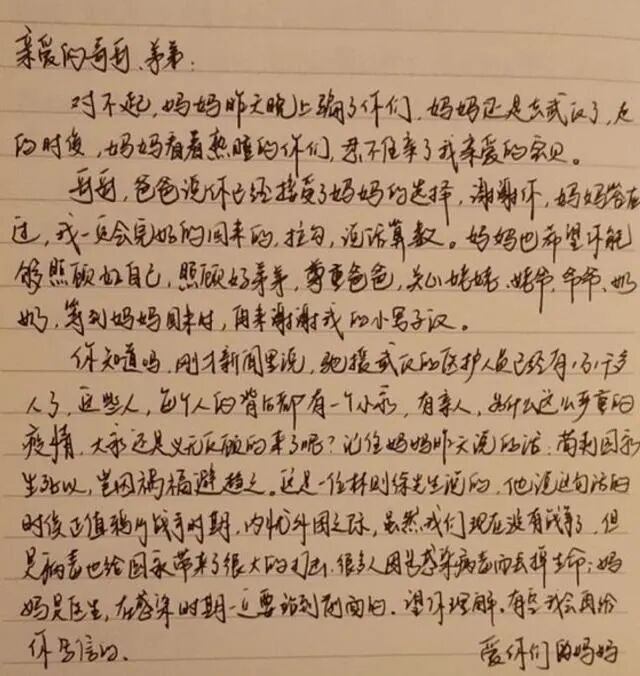 亲爱的哥哥、弟弟：
对不起，妈妈昨天晚上骗了你们，妈妈还是去武汉了，走
的时候，妈妈看着熟睡的你们，忍不住亲了我亲爱的宝贝。
哥哥，爸爸说你已经接受了妈妈的选择，谢谢你，妈妈答应
过，我一定会完好的回来的，拉勾，说话算数。妈妈也希望你能
够照顾好自己，照顾好弟弟，尊重爸爸，关心姥姥、姥爷、爷爷、奶
奶，等到妈妈回来时，再来谢谢我的小男子汉。
你知道吗，刚才新闻里说，驰援武汉的医护人员已经有1万1千多
人了，这些人，每个人的背后都有一个小家，有亲人，为什么这么严重的
疫情，大家还是义无反顾的来了呢？记住妈妈昨天说的话：苟利国家
生死以，岂因祸福避趋之。这是一位林则徐先生说的，他说这句话的
时候正值鸦片战争时期，内忧外困之际，虽然我们现在没有战争了，但
是病毒也给国家带来了很大的打击，很多人因为感染病毒而丢掉生命；妈
妈是医生，在感染时期一定要站到前面的，望你理解。有空我会再给
你写信的。
爱你们的妈妈